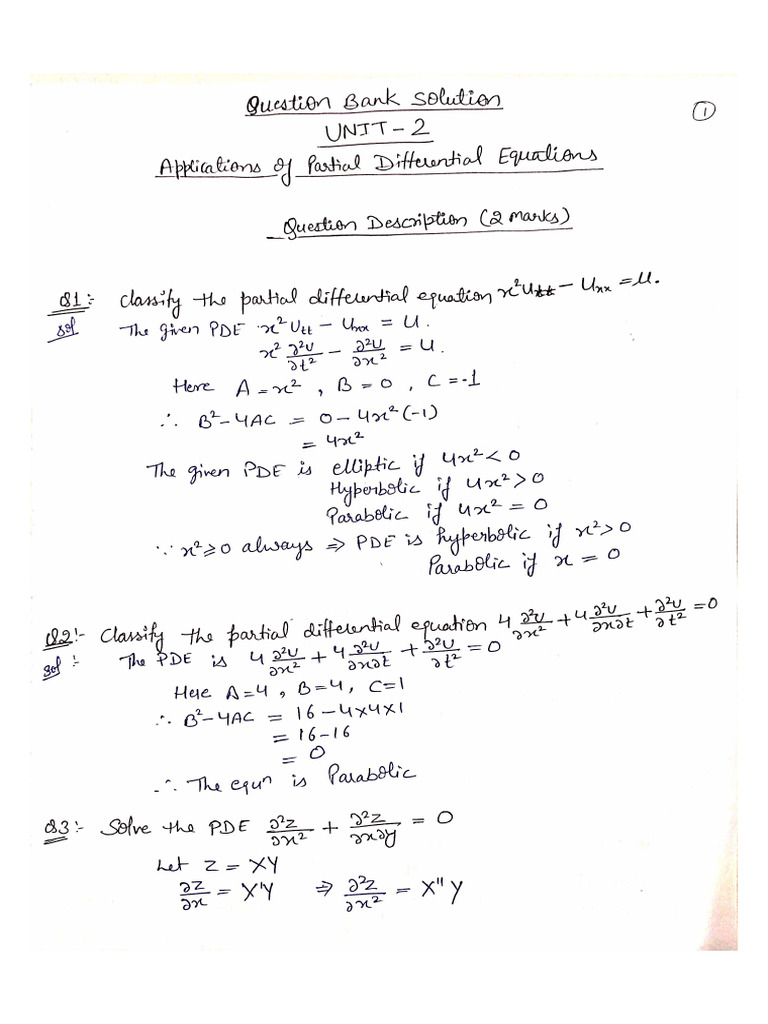 Question Bank Solution
①
UNIT-2
Applications of Partial Differential Equations
Question Description (2 marks)
Q1:- Classify the partial differential equation x²Utt - Uxx = u.
Sol The given PDE x²Utt - Uxx = u.
x² ∂²U/∂t² - ∂²U/∂x² = u.
Here A = x², B = 0, C = -1
∴ B²-4AC = 0 - 4x²(-1)
= 4x²
The given PDE is elliptic if 4x² < 0
Hyperbolic if 4x² > 0
Parabolic if 4x² = 0
∵ x² ≥ 0 always ⇒ PDE is hyperbolic if x² > 0
Parabolic if x = 0
Q2:- Classify the partial differential equation 4 ∂²U/∂x² + 4 ∂²U/∂x∂t + ∂²U/∂t² = 0
Sol:- The PDE is 4 ∂²U/∂x² + 4 ∂²U/∂x∂t + ∂²U/∂t² = 0
Here A=4, B=4, C=1
∴ B²-4AC = 16 - 4×4×1
= 16-16
= 0
∴ The equn is Parabolic
Q3:- Solve the PDE ∂²Z/∂x² + ∂²Z/∂x∂y = 0
Let Z = XY
∂Z/∂x = X'Y ⇒ ∂²Z/∂x² = X"Y